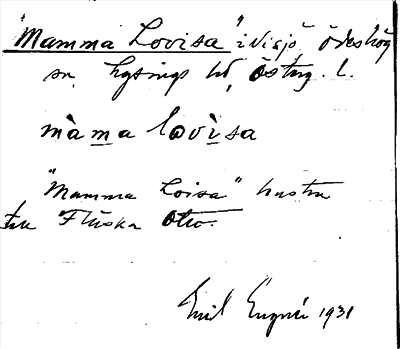 "Mamma Lovisa" i Visjö, Ödeshög
sn, Lysings hd, Östrg. l.
màma lovìsa
"Mamma Loisa" hustru
till Fluska Otto.
Emil 1931